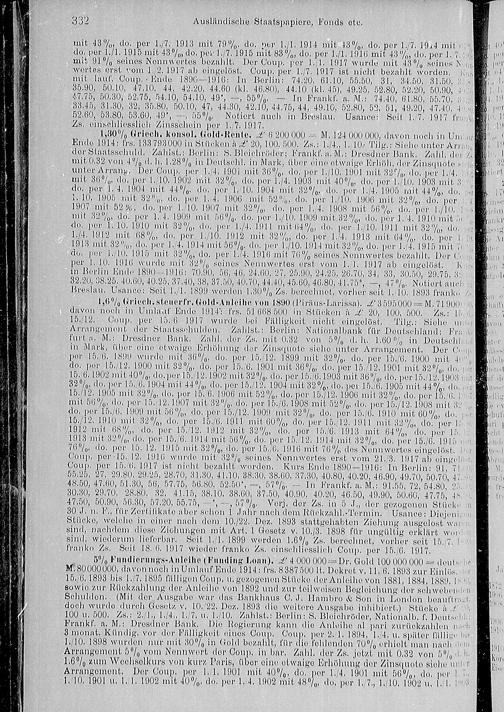 332 Ausländische Staatspapiere, Fonds etc.
mit 43%, do. per 1./7. 1913 mit 79%, do. per 1./1. 1914 mit 43%, do. per 1./7. 1914 mit
do. per 1./1. 1915 mit 43%, do. per 1./7. 1915 mit 83%, do. per 1./1. 1916 mit 43%, do. per 1./7.
mit 91% seines Nennwertes bezahlt. Der Coup. per 1./1. 1917 wurde mit 43% seines
wertes erst vom 1./2. 1917 ab eingelöst. Coup. per 1./7. 1917 ist nicht bezahlt worden.
mit lauf. Coup. Ende 1896—1916: In Berlin: 74.20, 61.10, 55.50, 31, 34.50, 31.50,
35.90, 50.10, 47.10, 44, 42.20, 44.60 (kl. 46.80), 44.10 (kl. 45), 49.25, 52.80, 52.20, 50.90,
47.75, 50.30, 52.75, 54.10, 54.10, 49*, —, 55%. — In Frankf. a. M.: 74.40, 61.80, 55.70,
33.45, 31.30, 32, 35.80, 50.10, 47, 44.30, 42.10, 44.75, 44, 49.10, 52.80, 52, 51, 49.20, 47.40,
52.60, 53.80, 53.60, 49*, —, 55%. Notiert auch in Breslau. Usance: Seit 1./7. 1917
Zs. einschliesslich Zinsschein per 1./7. 1917.
1,30% Griech. konsol. Gold-Rente. £ 6 200 000 = M. 124 000 000, davon noch in Um
Ende 1914: frs. 133 793 000 in Stücken à £ 20, 100, 500. Zs.: 1./4., 1./10. Tilg.: Siehe unter
der Staatsschuld. Zahlst.: Berlin: S. Bleichröder; Frankf. a. M.: Dresdner Bank. Zahl. der
mit 0.32 von 4% d. h. 1.28% in Deutschl. in Mark, über eine etwaige Erhöh. der Zinsquote
unter Arrang. Der Coup. per 1./4. 1901 mit 36%, do. per 1./10. 1901 mit 32%, do. per
mit 36%, do. per 1./10. 1902 mit 32%, do. per 1./4. 1903 mit 40%, do. per 1./10. 1903 mit
do. per 1./4. 1904 mit 44%, do. per 1./10. 1904 mit 32%, do. per 1./4. 1905 mit 44%, do.
1./10. 1905 mit 32%, do. per 1./4. 1906 mit 52%, do. per 1./10. 1906 mit 32%, do. per
1907 mit 52%, do. per 1./10. 1907 mit 32%, do. per 1./4. 1908 mit 56%, do. per 1./10.
mit 32%, do. per 1./4. 1909 mit 56%, do. per 1./10. 1909 mit 32%, do. per 1./4. 1910 mit
do. per 1./10. 1910 mit 32%, do. per 1./4. 1911 mit 64%, do. per 1./10. 1911 mit 32%, do.
1./4. 1912 mit 68%, do. per 1./10. 1912 mit 32%, do. per 1./4. 1913 mit 64%, do. per 1.
1913 mit 32%, do. per 1./4. 1914 mit 56%, do. per 1./10. 1914 mit 32%, do. per 1./4. 1915 mit
do. per 1./10. 1915 mit 32%, do. per 1./4. 1916 mit 76% seines Nennwertes bezahlt. Der
per 1./10. 1916 wurde mit 32% seines Nennwertes erst vom 1./11. 1917 ab eingelöst.
in Berlin Ende 1890—1916: 70.90, 56, 46, 24.60, 27, 25.90, 24.25, 26.70, 34, 33, 30.50, 29.75,
32.20, 38.25, 40.60, 40.25, 37.40, 38, 37.50, 40.70, 44.40, 45.60, 46.80, 41.75*, —, 47%. Notiert auch
Breslau. Usance: Seit 1./1. 1899 werden 1.30% Zs. berechnet, vorher seit 1./10. 1893 franko
1,6% Griech. steuerfr. Gold-Anleihe von 1890 (Piräus-Larissa). £ 3 595 000 = M. 71 900
davon noch in Umlauf Ende 1914: frs. 51 668 500 in Stücken à £ 20, 100, 500. Zs.:
15./12. Coup. per 15./6. 1917 wurde bei Fälligkeit nicht eingelöst. Tilg.: Siehe
Arrangement der Staatsschulden. Zahlst.: Berlin: Nationalbank für Deutschland;
furt a. M.: Dresdner Bank. Zahl. der Zs. mit 0.32 von 5% d. h. 1.60% in Deutschl.
in Mark, über eine etwaige Erhöhung der Zinsquote siehe unter Arrangement. Der
per 15./6. 1899 wurde mit 36%, do. per 15./12. 1899 mit 32%, do. per 15./6. 1900 mit
do. per 15./12. 1900 mit 32%, do. per 15./6. 1901 mit 36%, do. per 15./12. 1901 mit 32%, do.
15./6. 1902 mit 40%, do. per 15./12. 1902 mit 32%, do. per 15./6. 1903 mit 36%, do. per 15./12. 1903
32%, do. per 15./6. 1904 mit 44%, do. per 15./12. 1904 mit 32%, do. per 15./6. 1905 mit 44%, do.
15./12. 1905 mit 32%, do. per 15./6. 1906 mit 52%, do. per 15./12. 1906 mit 32%, do. per 15./6.
mit 56%, do. per 15./12. 1907 mit 32%, do. per 15./6. 1908 mit 52%, do. per 15./12. 1908 mit
do. per 15./6. 1909 mit 56%, do. per 15./12. 1909 mit 32%, do. per 15./6. 1910 mit 60%, do.
15./12. 1910 mit 32%, do. per 15./6. 1911 mit 60%, do. per 15./12. 1911 mit 32%, do. per
1912 mit 68%, do. per 15./12. 1912 mit 32%, do. per 15./6. 1913 mit 64%, do. per 15.
1913 mit 32%, do. per 15./6. 1914 mit 56%, do. per 15./12. 1914 mit 32%, do. per 15./6. 1915
76%, do. per 15./12. 1915 mit 32%, do. per 15./6. 1916 mit 76% des Nennwertes eingelöst.
Coup. per 15./12. 1916 wurde mit 32% seines Nennwertes erst vom 21./3. 1917 ab eingelöst
Coup. per 15./6. 1917 ist nicht bezahlt worden. Kurs Ende 1890—1916: In Berlin: 91,
55.25, 27, 29.80, 29.25, 28.70, 31.30, 41.10, 38.30, 38.60, 37.30, 40.80, 40.20, 46.90, 49.70, 50.70,
48.50, 47.60, 51.30, 56, 57.75, 56.80, 52.50*, —, 57%. — In Frankf. a. M.: 91.55, 72, 54.80,
30.30, 29.70, 28.80, 32, 41.15, 38.10, 38.60, 37.50, 40.90, 40.20, 46.50, 49.90, 50.60, 47.75,
47.50, 50.90, 56.30, 57.20, 55.75, —*, —, 57%. Verj. der Zs. in 5 J., der gezogenen Stücke
30 J. n. F., für Zertifikate aber schon 1 Jahr nach dem Rückzahl.-Termin. Usance: Diejenigen
Stücke, welche in einer nach dem 10./22. Dez. 1893 stattgehabten Ziehung ausgelost
sind, nachdem diese Ziehungen mit Art. 1 Gesetz v. 10./3. 1898 für ungültig erklärt
sind, wiederum lieferbar. Seit 1./1. 1899 werden 1.6% Zs. berechnet, vorher seit 15./7.
franko Zs. Seit 18./6. 1917 wieder franko Zs. einschliesslich Coup. per 15./6. 1917.
5% Fundierungs-Anleihe (Funding Loan). £ 4 000 000 = Dr. Gold 100 000 000 = deutsche
M. 80 000 000, davon noch in Umlauf Ende 1914: frs. 8 387 500 lt. Dekret v. 11./6. 1893 zur Einlös.
15./6. 1893 bis 1./7. 1895 fälligen Coup. u. gezogenen Stücke der Anleihe von 1881, 1884, 1889,
sowie zur Rückzahlung der Anleihe von 1892 und zur teilweisen Begleichung der schwebenden
Schulden. (Mit der Ausgabe war das Bankhaus C. J. Hambro & Son in London beauftragt,
doch wurde durch Gesetz v. 10./22. Dez. 1893 die weitere Ausgabe inhibiert.) Stücke à £
100 u. 500. Zs.: 2./1., 1./4., 1./7. u. 1./10. Zahlst.: Berlin: S. Bleichröder, Nationalb. f. Deutschl.
Frankf. a. M.: Dresdner Bank. Die Regierung kann die Anleihe al pari zurückzahlen
3 monat. Kündig. vor der Fälligkeit eines Coup. Coup. per 2./1. 1894, 1./4. u. später fällige
1./10. 1898 wurden nur mit 30% in Gold bezahlt, für die fehlenden 70% erhielt man nach
Arrangement 5% vom Nennwert der Coup. in bar. Zahl. der Zs. jetzt mit 0.32 von 5% d. h.
1.6% zum Wechselkurs von kurz Paris, über eine etwaige Erhöhung der Zinsquote siehe unter
Arrangement. Der Coup. per 1./1. 1901 mit 40%, do. per 1./4. 1901 mit 56%, do. per
1./10. 1901 u. 1./1. 1902 mit 40%, do. per 1./4. 1902 mit 48%, do. per 1./7., 1./10. 1902 u. 1./1.